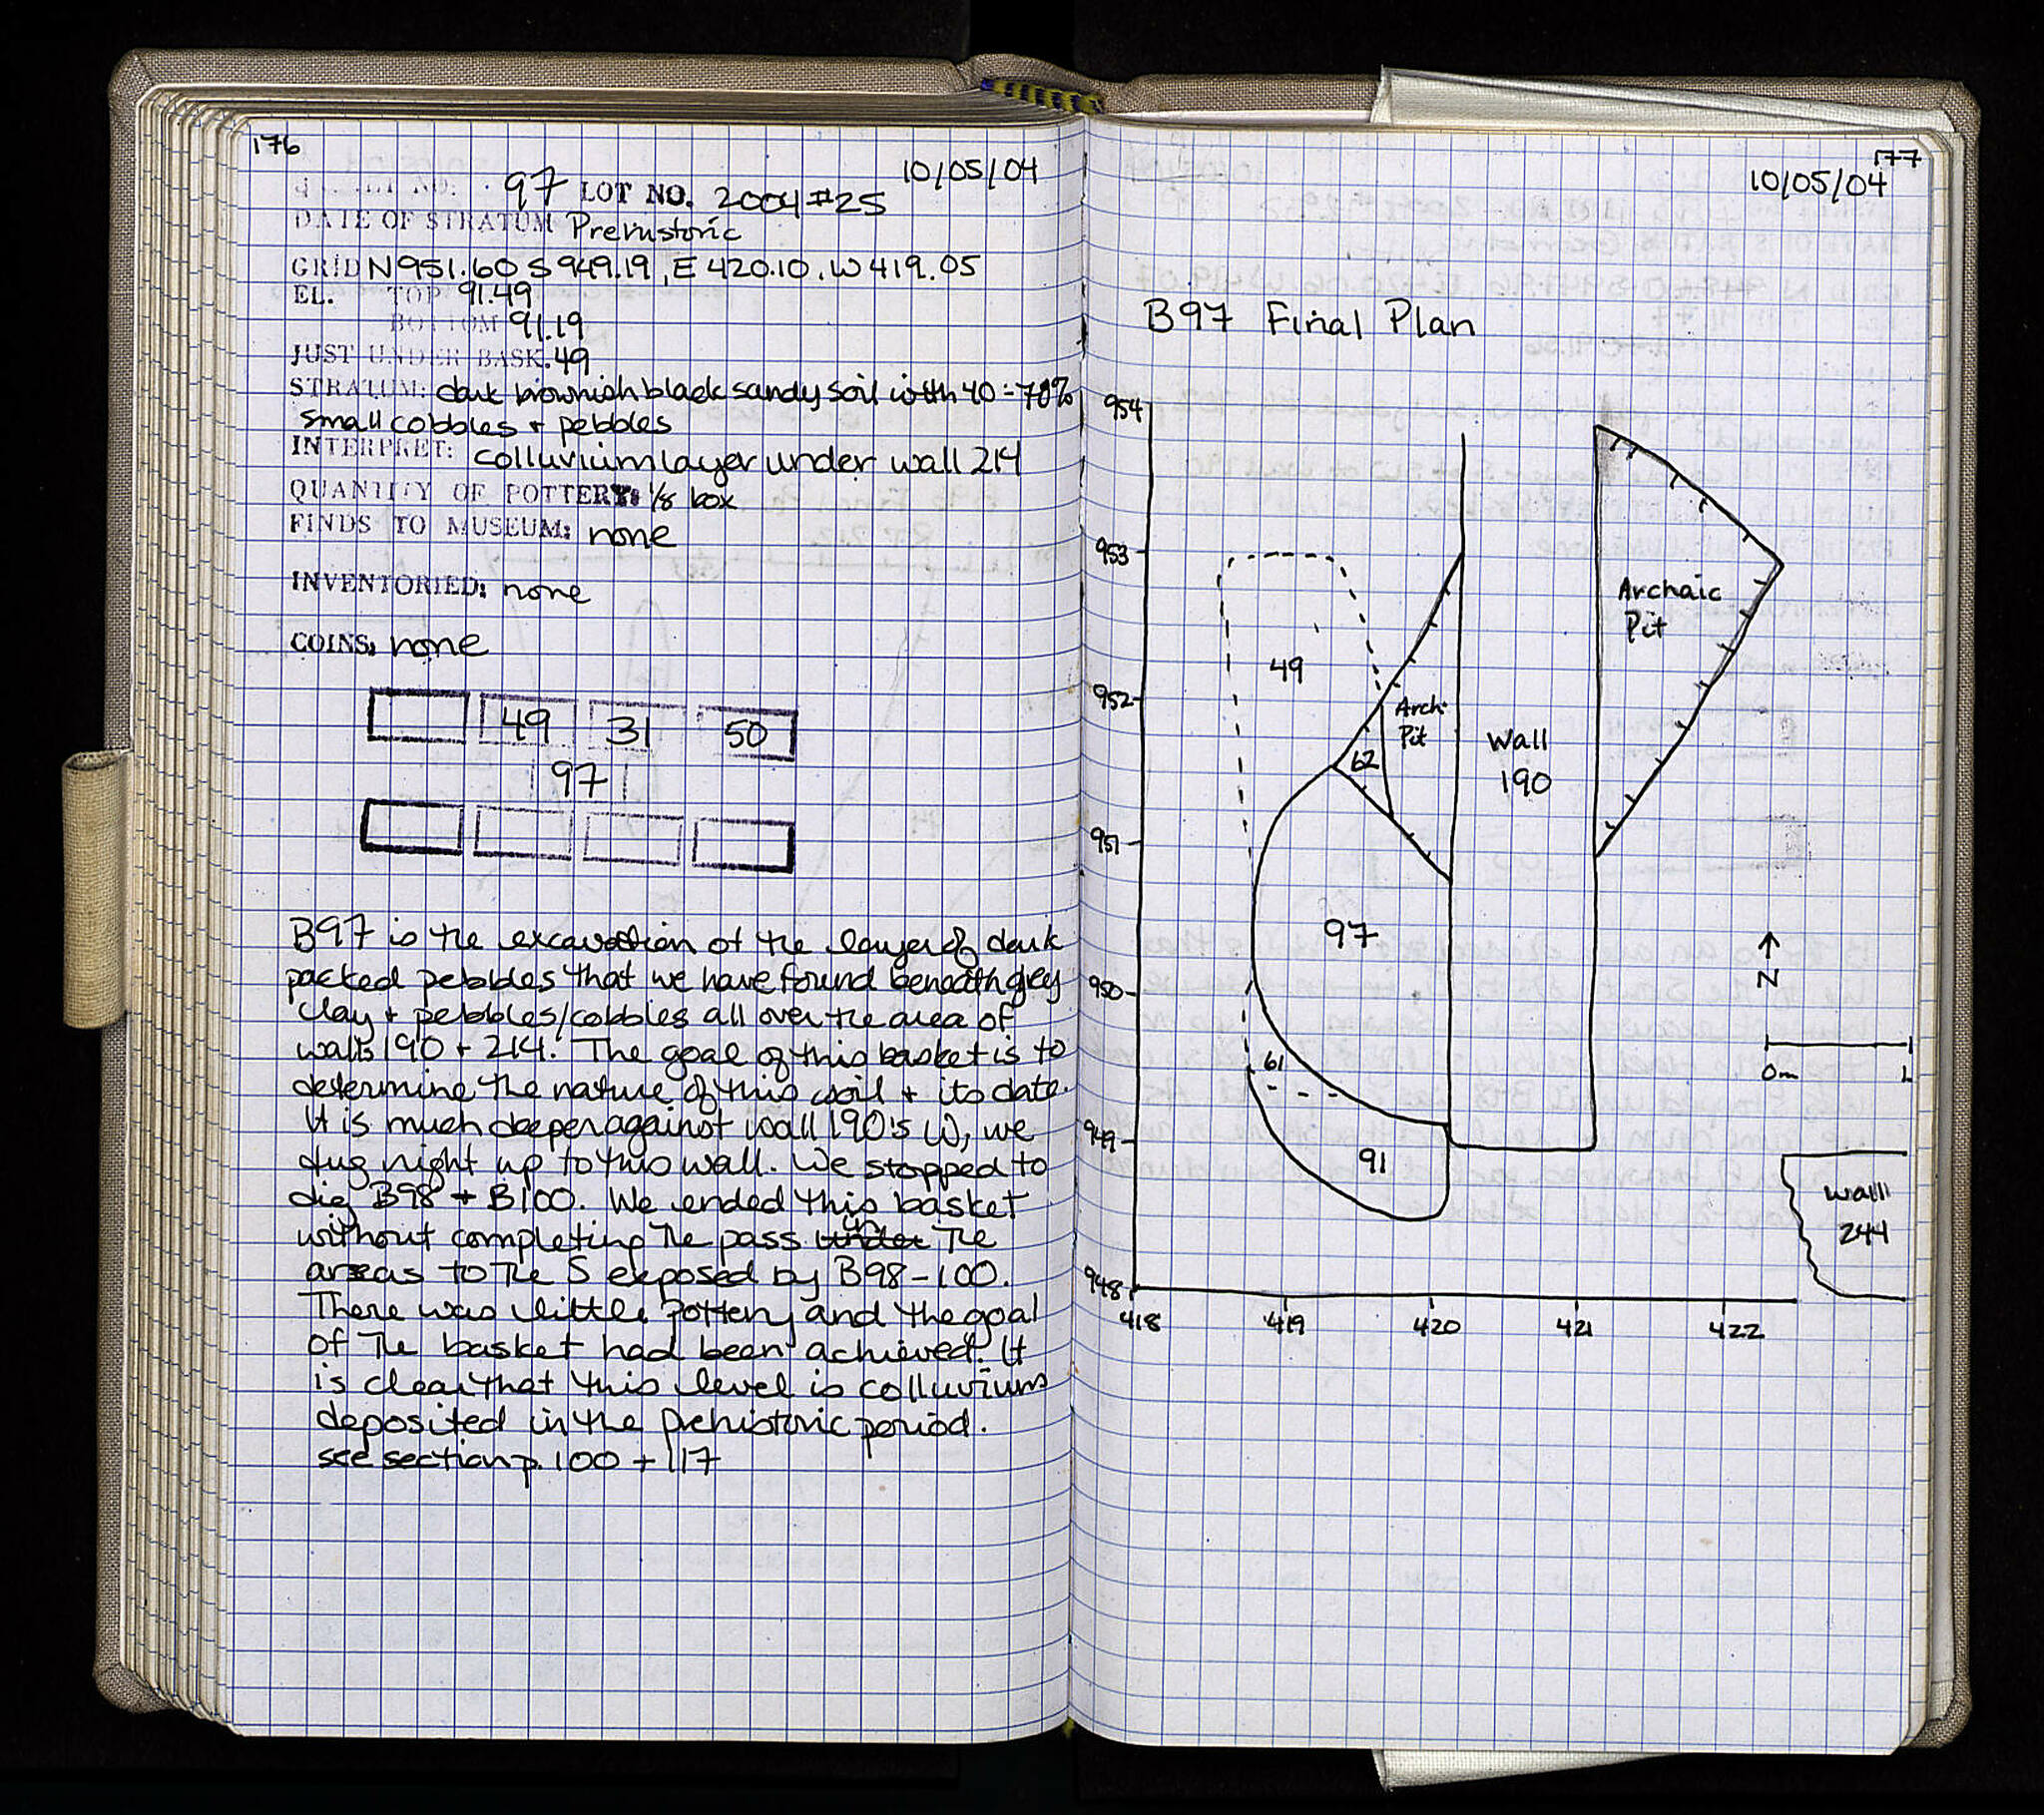 176
10/05/04
97 LOT NO. 2004#25
DATE OF STRATUM Prehistoric
GRID N951.60 S949.19, E420.10, W419.05
EL. TOP 91.49
BOTTOM 91.19
JUST UNDER BASK. 49
STRATUM: dark brownish black sandy soil with 40-70%
small cobbles + pebbles
INTERPRET: colluvium layer under wall 214
QUANTITY OF POTTERY: 1/8 box
FINDS TO MUSEUM: none
INVENTORIED: none
COINS: none
49 31 50
97
B97 is the excavation of the layer of dark
packed pebbles that we have found beneath grey
clay + pebbles/cobbles all over the area of
walls 190 + 214. The goal of this basket is to
determine the nature of this soil + its date.
It is much deeper against wall 190's W, we
dug right up to this wall. We stopped to
dig B98 + B100. We ended this basket
without completing the pass under in the
areas to the S exposed by B98-100.
There was little pottery and the goal
of the basket had been achieved. It
is clear that this level is colluvium
deposited in the prehistoric period.
see section p. 100 + 117
177
10/05/04
B97 Final Plan
954
953
952
951
950
949
948
418 419 420 421 422
Archaic
Pit
49
Arch.
Pit
62
Wall
190
97
N
0m 1
61
91
wall
244